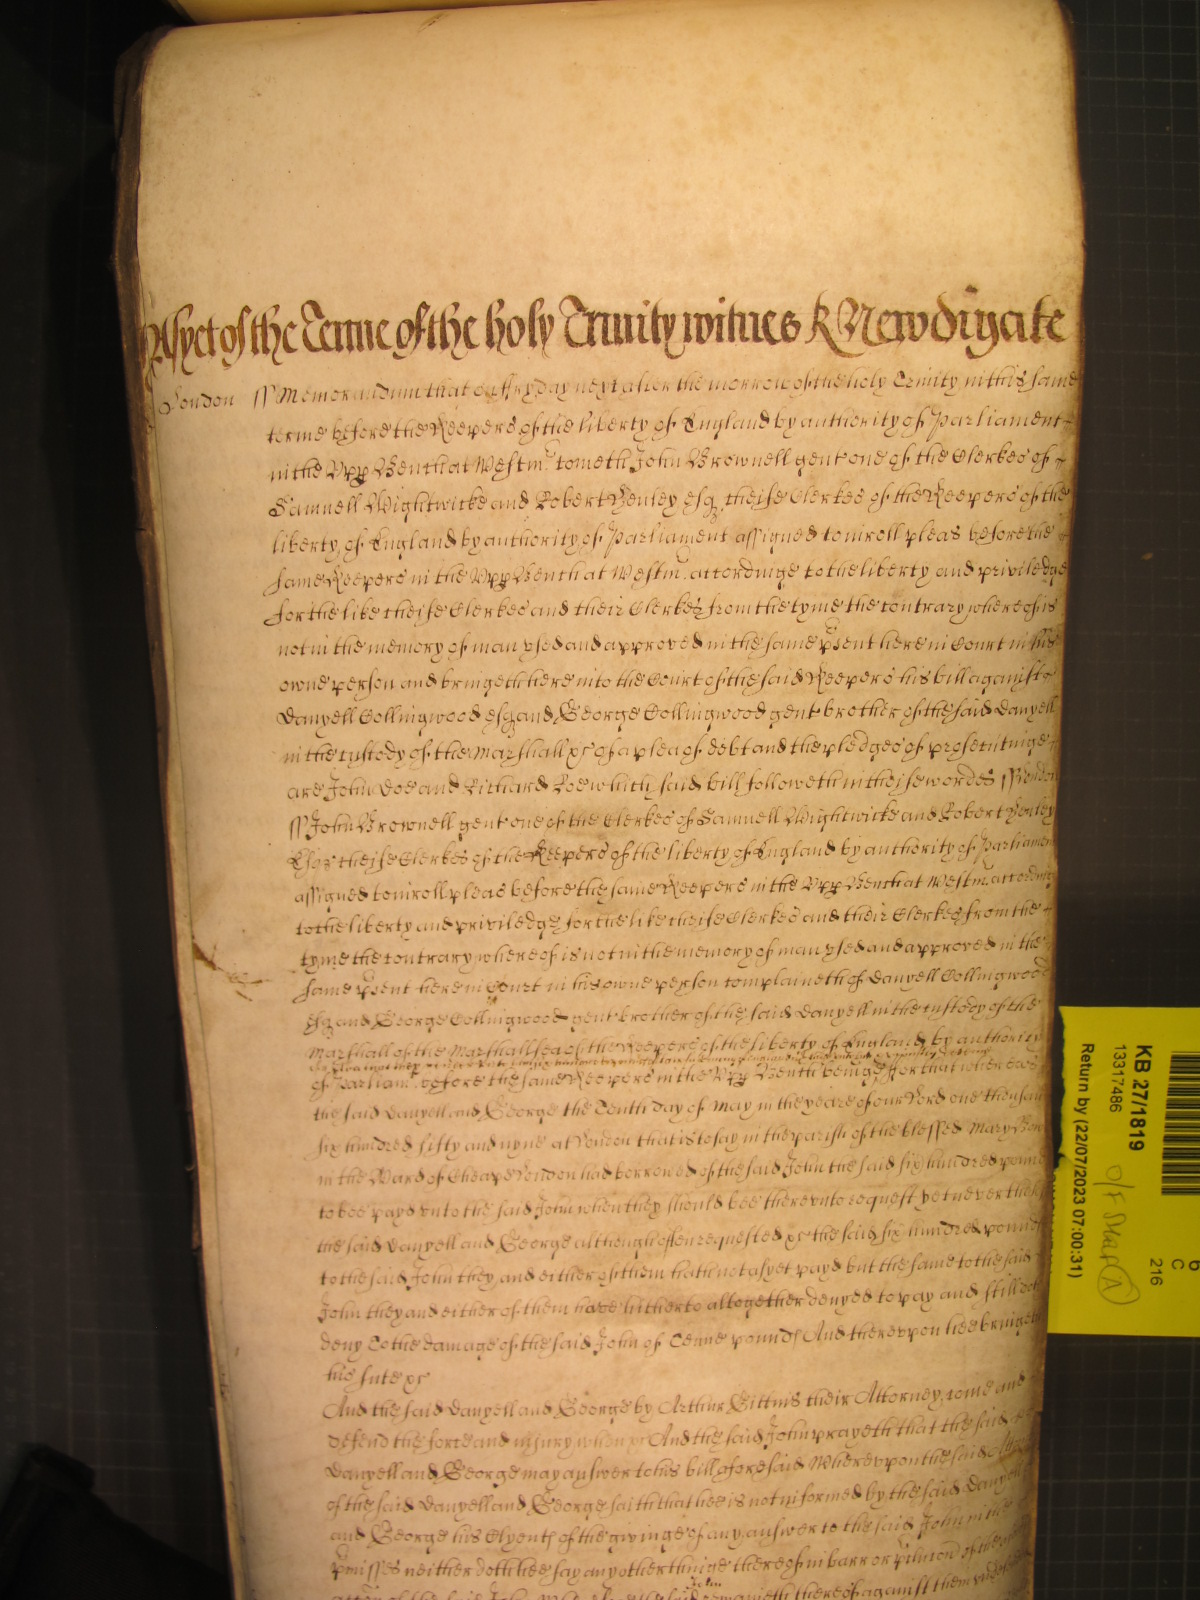 As yet of the Terme of the holy Trinity witnes R Newdigate
London ss Memorandum that on ffryday next after the morrow of the holy Trinity in this same
terme before the Keepers of the liberty of England by authority of Parliament
in the Upp Bench at Westm cometh John Brownell gent one of the Clerkes of
Samuell Wightwicke and Robert Henley esq cheife Clerkes of the Keepers of the
liberty of England by authority of Parliament assigned to inroll pleas before the
same Keepers in the Upp Bench at Westm accordinge to the liberty and priviledge
for the like cheife Clerkes and their Clerkes from the tyme the contrary whereof is
not in the memory of man used and approved in the same psent here in Court in his
owne person and bringeth here into the Court of the said Keepers his bill against
Danyell Collingwood esq and George Collingwood gent brother of the said Danyell
in the custody of the Marshall &c of a plea of debt and the pledges of prosecutinge
are John Doe and Richard Roe which said bill followeth in theise wordes ss London
ss John Brownell gent one of the Clerkes of Samuell Wightwicke and Robert Henley
Esqs cheife Clerkes of the Keepers of the liberty of England by authority of Parliament
assigned to inroll pleas before the same Keepers in the Upp Bench at Westm accordinge
to the liberty and priviledge for the like cheife Clerkes and their Clerkes from the
tyme the contrary whereof is not in the memory of man used and approved in the
same psent here in Court in his owne person complaineth of Danyell Collingwood
esq and George Collingwood gent brother of the said Danyell in the custody of the
Marshall of the Marshallsea of the Keepers of the liberty of England by authority
of Parliam before the same Keepers in the Upp Bench beinge ffor that whereas
the said Danyell and George the Tenth day of May in the yeare of our Lord one thousand
six hundred fifty and nyne at London that is to say in the parish of the blessed Mary Bow
in the Ward of Cheape London had borrowed of the said John the said six hundred pounds
to bee payd unto the said John when they should bee thereunto request yet neverthelesse
the said Danyell and George although often requested &c the said six hundred pounds
to the said John they and either of them hath not as yet payd but the same to the said
John they and either of them have hitherto altogether denyed to pay and still doe
deny To the damage of the said John of Tenne pounds And thereupon hee bringeth
his sute &c
And the said Danyell and George by Arthur Gittins their Attorney come and
defend the force and injury when &c And the said John prayeth that the said
Danyell and George may answer to his bill aforesaid Whereupon the said Attorney
of the said Danyell and George saith that hee is not informed by the said Danyell
and George his Clyents of the givinge of any answer to the said John in the
pmisses neither doth hee say any other thinge thereof in barr or pclusion of the
said John remaineth thereof against them
KB 27/1819
13317486
Return by (22/07/2023 07:00:31)
C
216
A